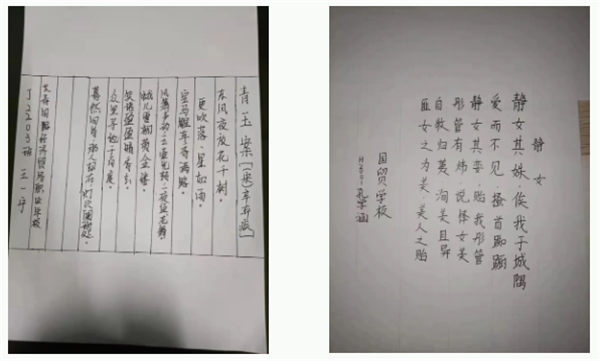 青玉案【(宋)辛弃疾】
东风夜放花千树。
更吹落、星如雨。
宝马雕车香满路。
凤箫声动,玉壶光转,一夜鱼龙舞
蛾儿雪柳黄金缕。
笑语盈盈暗香去。
众里寻他千百度。
蓦然回首,那人却在,灯火阑珊处。
国际经济贸易职业学校
J2203班 王一宁
静女
静女其姝,俟我于城隅
爱而不见,搔首踟蹰
静女其娈,贻我彤管
彤管有炜,说怿女美
自牧归荑,洵美且异
匪女之为美,美人之贻
国贸学校